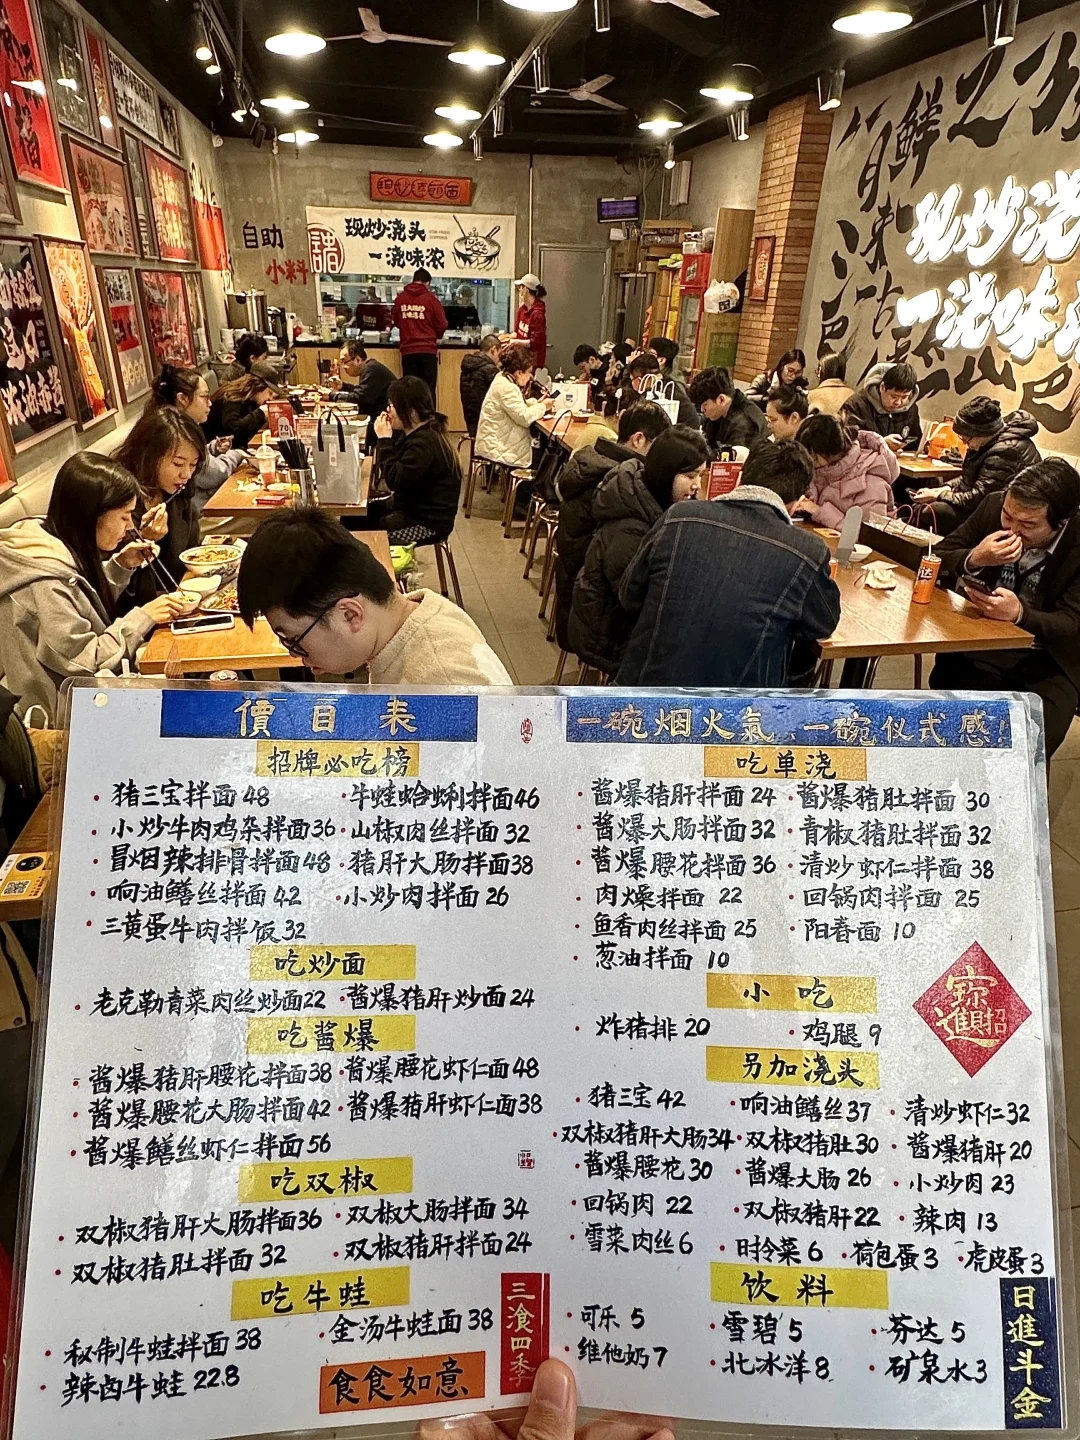 自助
小料
现炒浇头
一浇味浓
旬鲜之
现炒浇
一浇味
價目表
招牌必吃榜
·猪三宝拌面48 ·牛蛙蛤蜊拌面46
·小炒牛肉鸡杂拌面36 ·山椒肉丝拌面32
·冒烟辣排骨拌面48 ·猪肝大肠拌面38
·响油鳝丝拌面42 ·小炒肉拌面26
·三黄蛋牛肉拌饭32
吃炒面
·老克勒青菜肉丝炒面22 ·酱爆猪肝炒面24
吃酱爆
·酱爆猪肝腰花拌面38 ·酱爆腰花虾仁面48
·酱爆腰花大肠拌面42 ·酱爆猪肝虾仁面38
·酱爆鳝丝虾仁拌面56
吃双椒
·双椒猪肝大肠拌面36 ·双椒大肠拌面34
·双椒猪肚拌面32 ·双椒猪肝拌面24
吃牛蛙
·秘制牛蛙拌面38 ·金汤牛蛙面38
·辣卤牛蛙22.8
食食如意
三飡四季
一碗烟火氣 一碗仪式感!
吃单浇
·酱爆猪肝拌面24 ·酱爆猪肚拌面30
·酱爆大肠拌面32 ·青椒猪肚拌面32
·酱爆腰花拌面36 ·清炒虾仁拌面38
·肉燥拌面22 ·回锅肉拌面25
·鱼香肉丝拌面25 ·阳春面10
·葱油拌面10
小吃
·炸猪排20 ·鸡腿9
招財進宝
另加浇头
·猪三宝42 ·响油鳝丝37 ·清炒虾仁32
·双椒猪肝大肠34 ·双椒猪肚30 ·酱爆猪肝20
·酱爆腰花30 ·酱爆大肠26 ·小炒肉23
·回锅肉22 ·双椒猪肝22 ·辣肉13
·雪菜肉丝6 ·时令菜6 ·荷包蛋3 ·虎皮蛋3
饮料
·可乐5 ·雪碧5 ·芬达5
·维他奶7 ·北冰洋8 ·矿泉水3
日進斗金